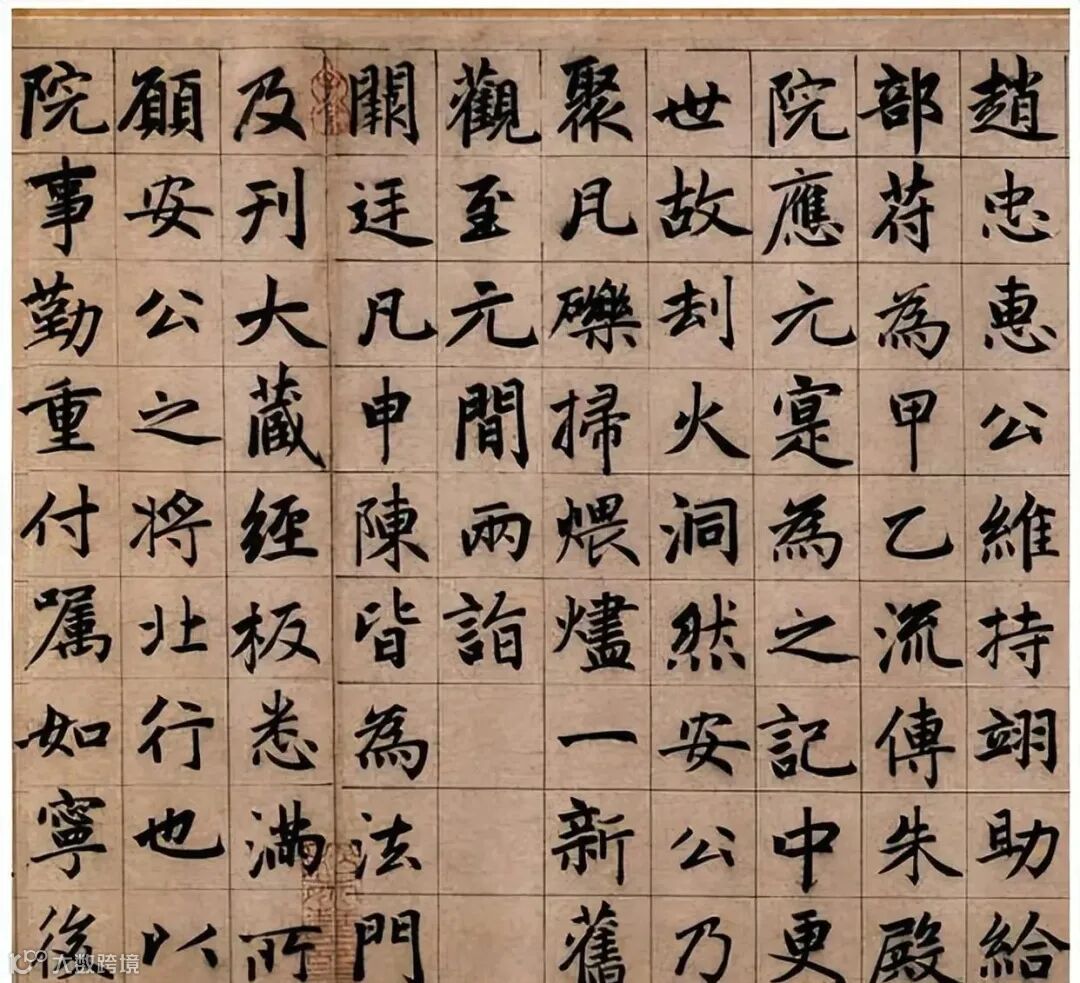 趙忠惠公維持翊助給
部苻為甲乙流傳朱殿
院應元寔為之記中更
世故刦火洞然安公乃
聚凡礫掃煨燼一新舊
觀至元間兩詣
闕迋凡申陳皆為法門
及刊大藏經板悉滿所
願安公之將北行也以
院事勤重付嘱如寧後
大数跨境